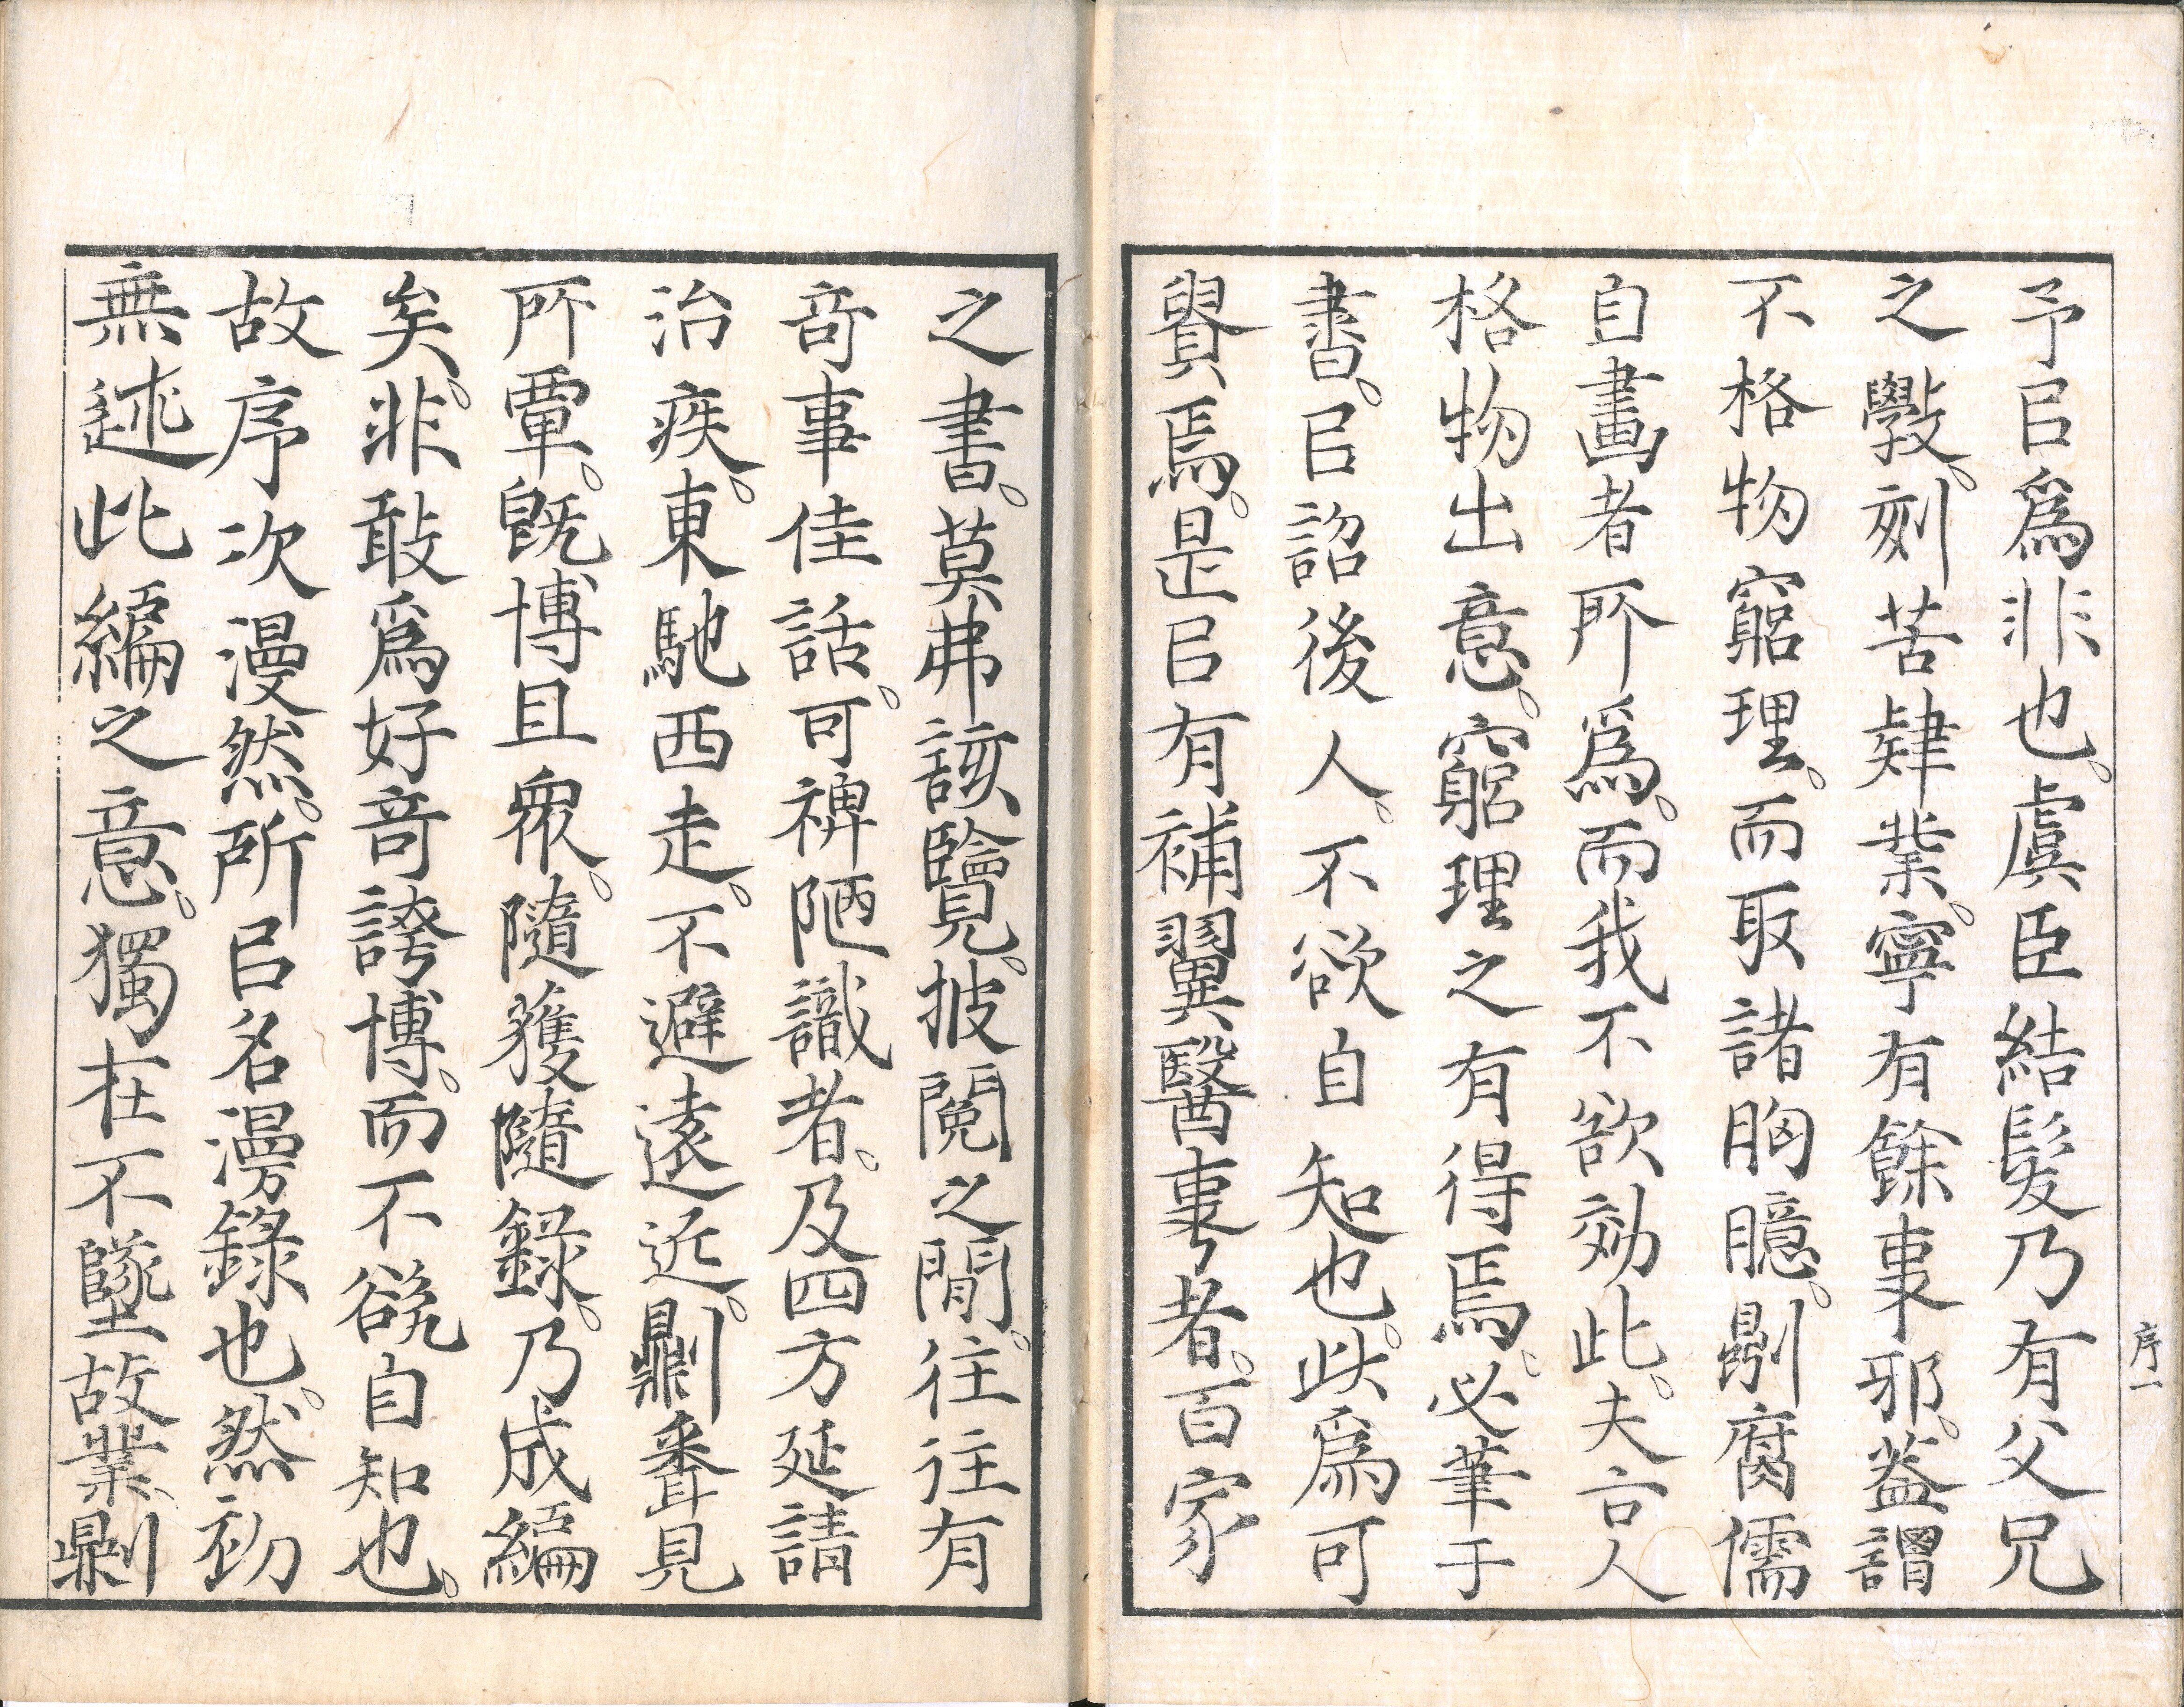 予㠯爲非也。虞臣結髮乃有父兄
之斆。刻苦肄業。寧有餘事邪。葢謂
不格物窮理。而取諸胸臆。剽腐儒
自畫者所爲。而我不欲効此。夫言人
格物出意。窮理之有得焉。必筆于
書。㠯詔後人。不欲自知也。此爲可
貴焉。是㠯有補翼醫事者。百家
之書。莫弗該覽。披閱之間。往往有
奇事佳話。可裨陋識者。及四方延請
治疾。東馳西走。不避遠近。剽聾見
所覃。旣博且衆。隨獲隨錄。乃成編
矣。非敢爲好奇誇博。而不欲自知也。
故序次漫然。所㠯名漫錄也。然初
無述此編之意。獨在不墜故業。剽
序一